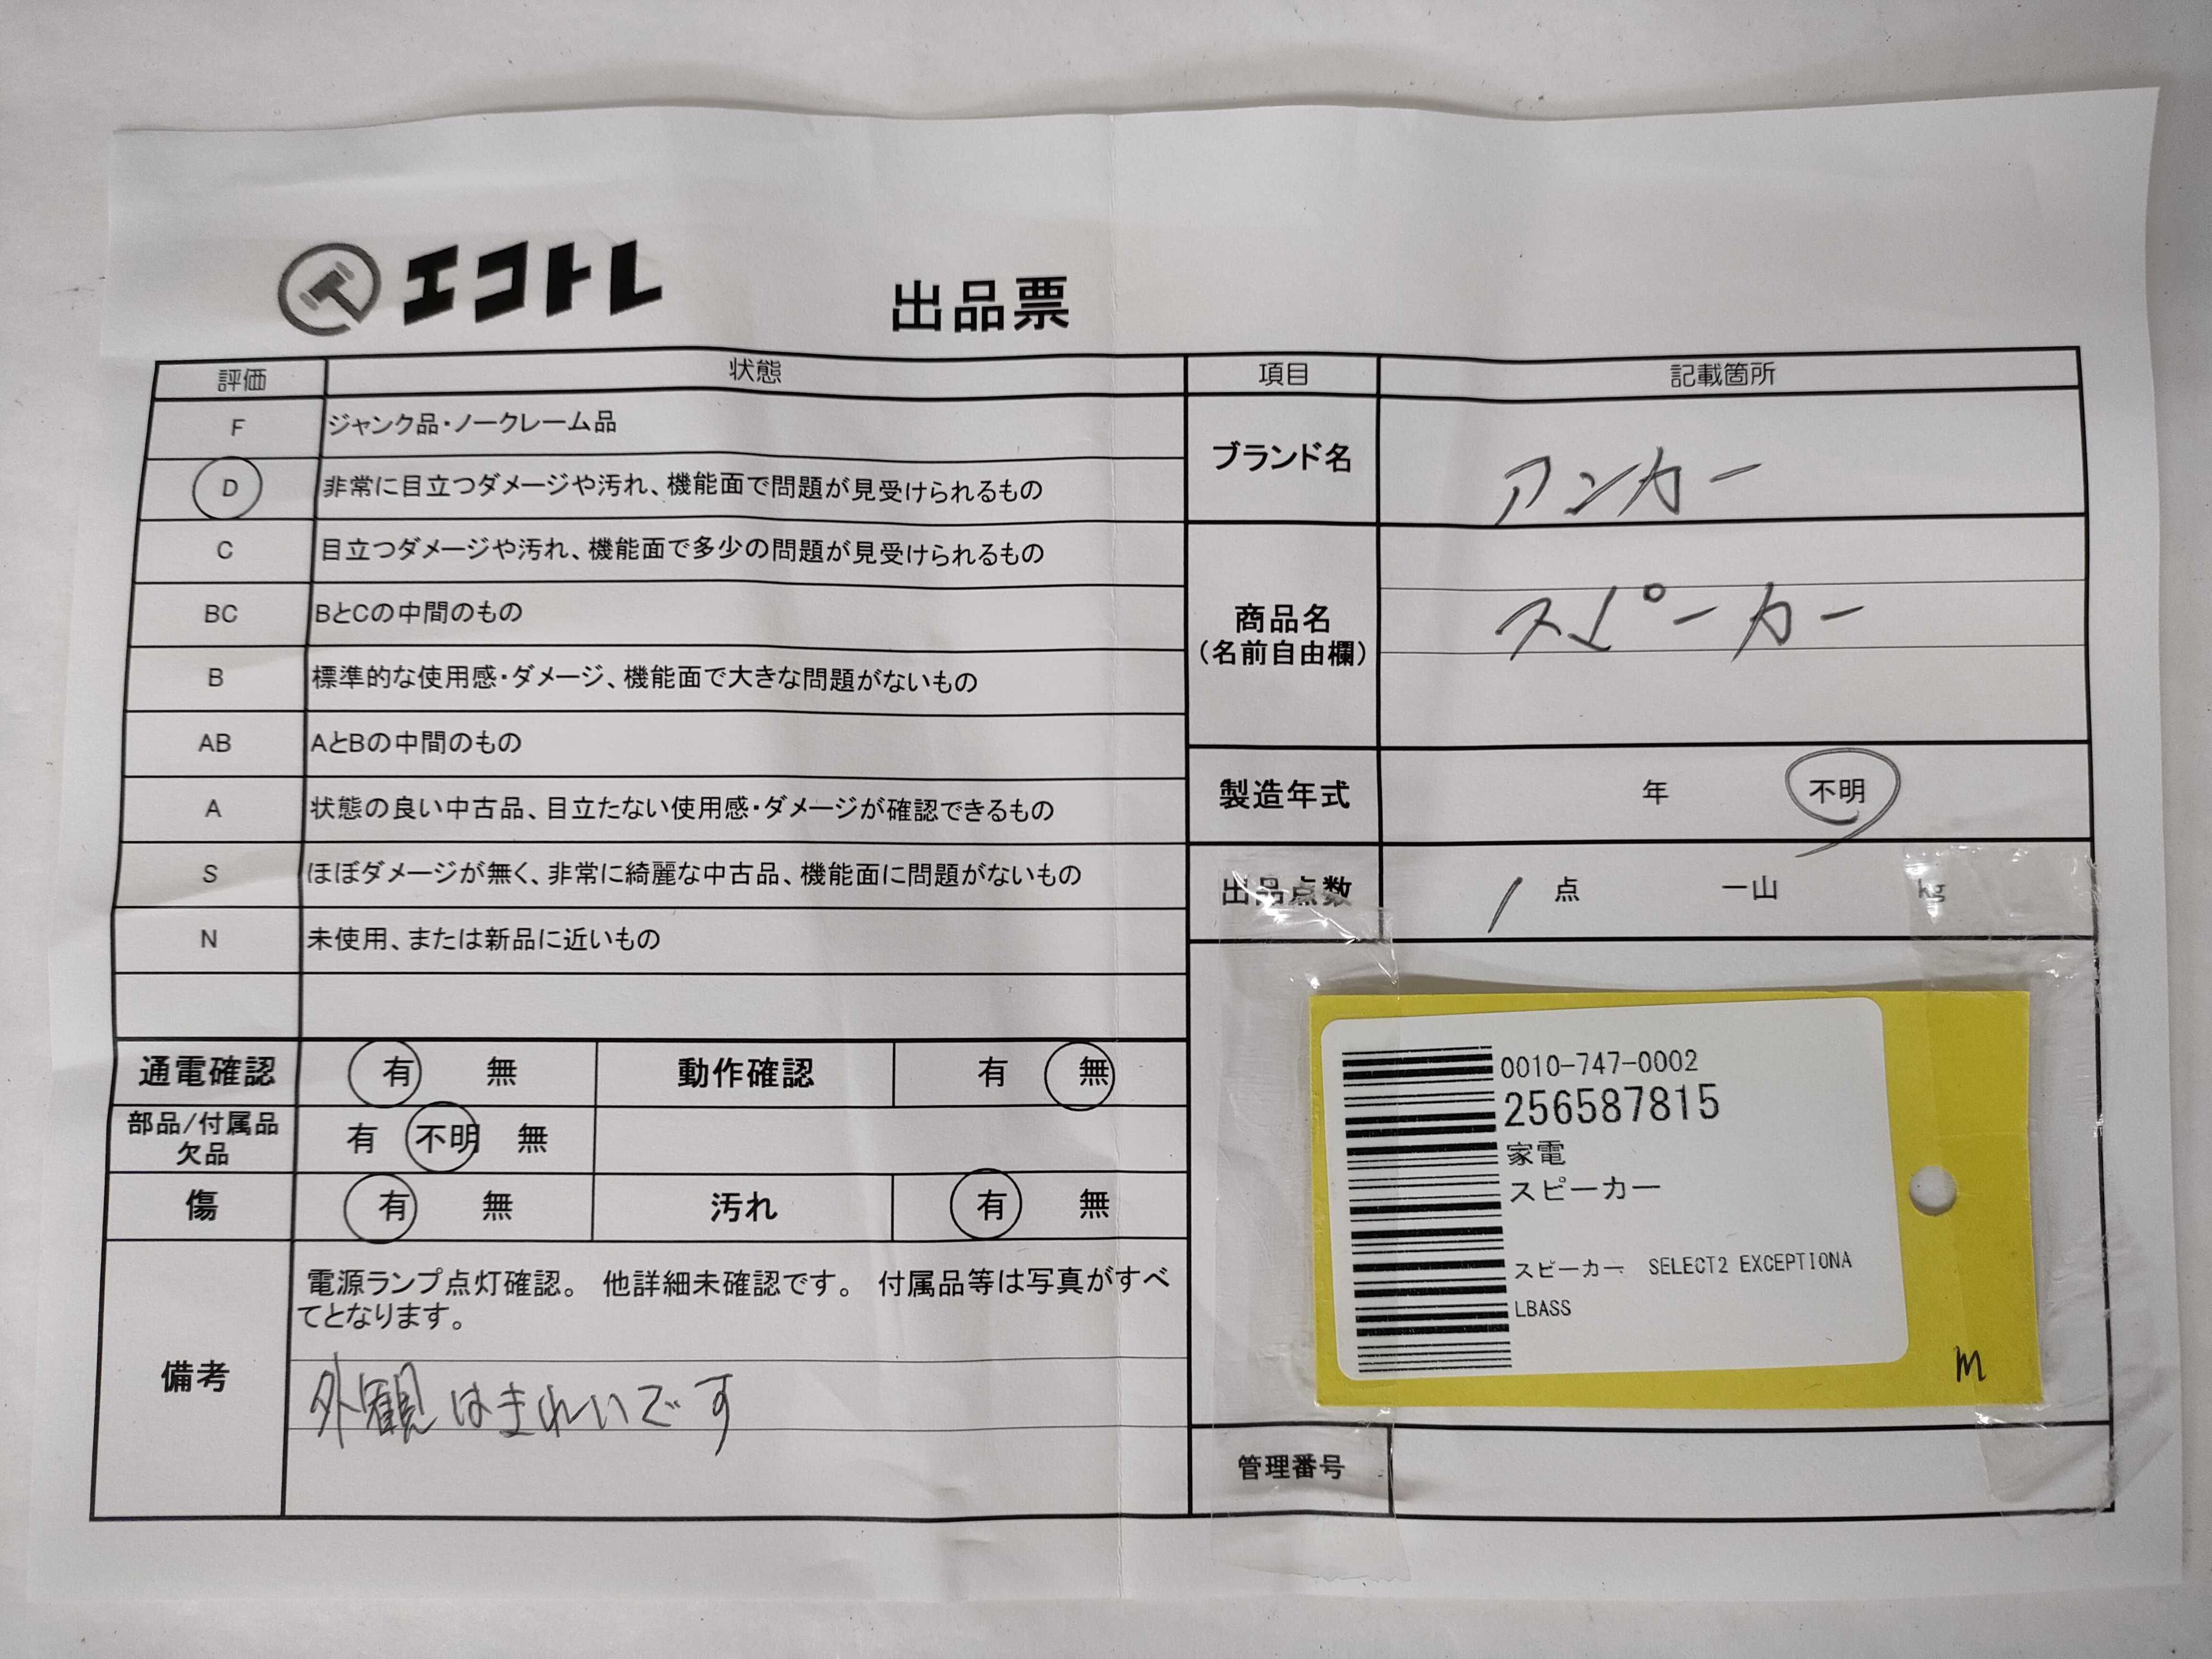 エコトレ
出品票
評価 状態
F ジャンク品・ノークレーム品
D 非常に目立つダメージや汚れ、機能面で問題が見受けられるもの
C 目立つダメージや汚れ、機能面で多少の問題が見受けられるもの
BC BとCの中間のもの
B 標準的な使用感・ダメージ、機能面で大きな問題がないもの
AB AとBの中間のもの
A 状態の良い中古品、目立たない使用感・ダメージが確認できるもの
S ほぼダメージが無く、非常に綺麗な中古品、機能面に問題がないもの
N 未使用、または新品に近いもの
通電確認 有 無 動作確認 有 無
部品/付属品
欠品 有 不明 無
傷 有 無 汚れ 有 無
備考
電源ランプ点灯確認。 他詳細未確認です。 付属品等は写真がすべ
てとなります。
外観はきれいです
項目 記載箇所
ブランド名 アンカー
商品名
(名前自由欄) スピーカー
製造年式 年 不明
出品点数 1 点 一山 kg
0010-747-0002
256587815
家電
スピーカー
スピーカー SELECT2 EXCEPTIONA
LBASS
m
管理番号